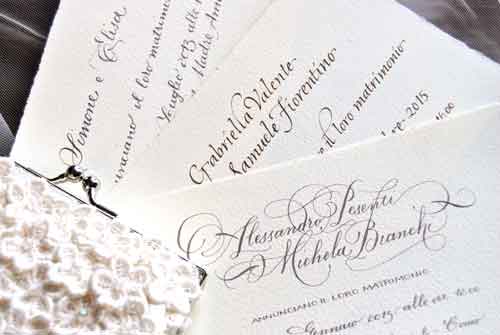 Simone e Elisa
annunciano il loro matrimonio
Luglio 2013 alle
Madre
Gabriella Valente
Samuele Fiorentino
il loro matrimonio
2015
Alessandro Pesenti
Michela Bianchi
ANNUNCIANO IL LORO MATRIMONIO
Gennaio 2013 alle ore 10.00
"Como"